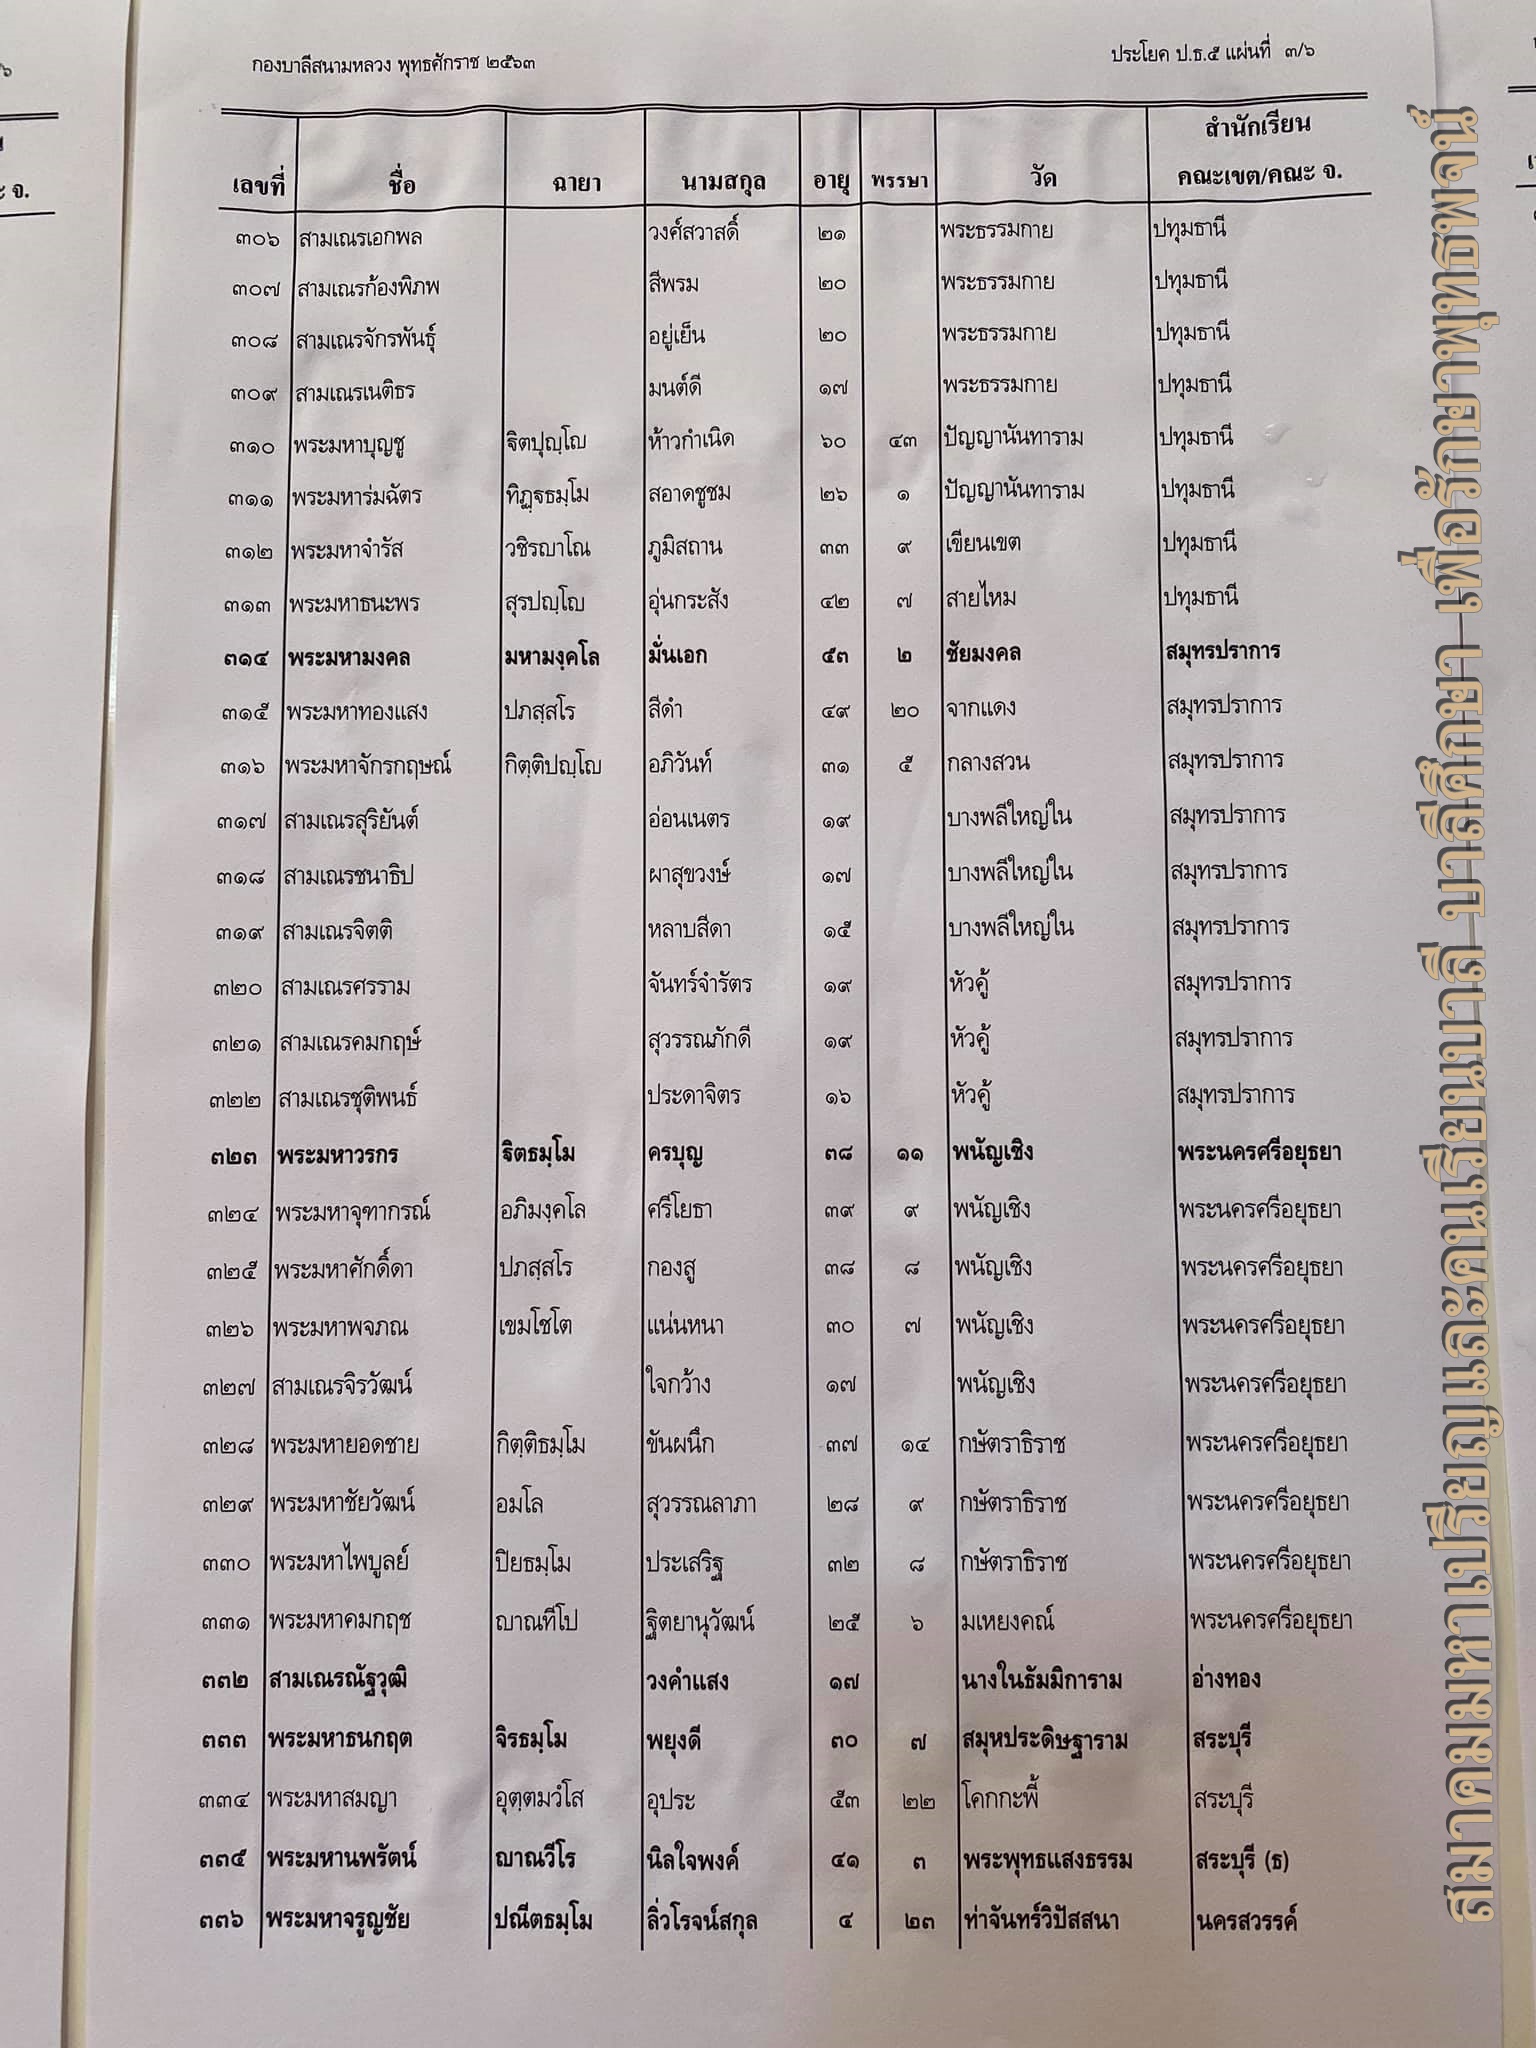 กองบาลีสนามหลวง พุทธศักราช ๒๕๖๓ ประโยค ป.ธ.๕ แผ่นที่ ๓/๖
เลขที่ ชื่อ ฉายา นามสกุล อายุ พรรษา วัด สำนักเรียน คณะเขต/คณะ จ.
๓๐๖ สามเณรเอกพล วงศ์สวาสดิ์ ๒๑ พระธรรมกาย ปทุมธานี
๓๐๗ สามเณรก้องพิภพ สีพรม ๒๐ พระธรรมกาย ปทุมธานี
๓๐๘ สามเณรจักรพันธุ์ อยู่เย็น ๒๐ พระธรรมกาย ปทุมธานี
๓๐๙ สามเณรเนติธร มนต์ดี ๑๗ พระธรรมกาย ปทุมธานี
๓๑๐ พระมหาบุญชู ฐิตปุญฺโญ ห้าวกำเนิด ๖๐ ๔๓ ปัญญานันทาราม ปทุมธานี
๓๑๑ พระมหาร่มฉัตร ทิฏฺฐธมฺโม สอาดชูชม ๒๖ ๑ ปัญญานันทาราม ปทุมธานี
๓๑๒ พระมหาจำรัส วชิรญาโณ ภูมิสถาน ๓๓ ๙ เขียนเขต ปทุมธานี
๓๑๓ พระมหาธนะพร สุรปญฺโญ อุ่นกระสัง ๔๒ ๗ สายไหม ปทุมธานี
๓๑๔ พระมหามงคล มหามงฺคโล มั่นเอก ๕๓ ๒ ชัยมงคล สมุทรปราการ
๓๑๕ พระมหาทองแสง ปภสฺสโร สีดำ ๔๙ ๒๐ จากแดง สมุทรปราการ
๓๑๖ พระมหาจักรกฤษณ์ กิตฺติปญฺโญ อภิวันท์ ๓๑ ๕ กลางสวน สมุทรปราการ
๓๑๗ สามเณรสุริยันต์ อ่อนเนตร ๑๙ บางพลีใหญ่ใน สมุทรปราการ
๓๑๘ สามเณรชนาธิป ผาสุขวงษ์ ๑๗ บางพลีใหญ่ใน สมุทรปราการ
๓๑๙ สามเณรจิตติ หลาบสีดา ๑๕ บางพลีใหญ่ใน สมุทรปราการ
๓๒๐ สามเณรศรราม จันทร์จำรัตร ๑๙ หัวคู้ สมุทรปราการ
๓๒๑ สามเณรคมกฤษ์ สุวรรณภักดี ๑๙ หัวคู้ สมุทรปราการ
๓๒๒ สามเณรชุติพนธ์ ประดาจิตร ๑๖ หัวคู้ สมุทรปราการ
๓๒๓ พระมหาวรกร ฐิตธมฺโม ครบุญ ๓๘ ๑๑ พนัญเชิง พระนครศรีอยุธยา
๓๒๔ พระมหาจุฑากรณ์ อภิมงฺคโล ศรีโยธา ๓๙ ๙ พนัญเชิง พระนครศรีอยุธยา
๓๒๕ พระมหาศักดิ์ดา ปภสฺสโร กองสู ๓๘ ๘ พนัญเชิง พระนครศรีอยุธยา
๓๒๖ พระมหาพจภณ เขมโชโต แน่นหนา ๓๐ ๗ พนัญเชิง พระนครศรีอยุธยา
๓๒๗ สามเณรจิรวัฒน์ ใจกว้าง ๑๗ พนัญเชิง พระนครศรีอยุธยา
๓๒๘ พระมหายอดชาย กิตฺติธมฺโม ขันผนึก ๓๗ ๑๔ กษัตราธิราช พระนครศรีอยุธยา
๓๒๙ พระมหาชัยวัฒน์ อมโล สุวรรณลาภา ๒๘ ๙ กษัตราธิราช พระนครศรีอยุธยา
๓๓๐ พระมหาไพบูลย์ ปิยธมฺโม ประเสริฐ ๓๒ ๘ กษัตราธิราช พระนครศรีอยุธยา
๓๓๑ พระมหาคมกฤช ญาณทีโป ฐิตยานุวัฒน์ ๒๕ ๖ มเหยงคณ์ พระนครศรีอยุธยา
๓๓๒ สามเณรณัฐวุฒิ วงคำแสง ๑๗ นางในธัมมิการาม อ่างทอง
๓๓๓ พระมหาธนกฤต จิรธมฺโม พยุงดี ๓๐ ๗ สมุหประดิษฐาราม สระบุรี
๓๓๔ พระมหาสมญา อุตฺตมวํโส อุประ ๕๓ ๒๒ โคกกะพี้ สระบุรี
๓๓๕ พระมหานพรัตน์ ญาณวีโร นิลใจพงค์ ๔๑ ๓ พระพุทธแสงธรรม สระบุรี (ธ)
๓๓๖ พระมหาจรูญชัย ปณีตธมฺโม ลิ่วโรจน์สกุล ๔ ๒๓ ท่าจันทร์วิปัสสนา นครสวรรค์
สมาคมมหาเปรียญและคนเรียนบาลี บาลีศึกษา เพื่อรักษาพุทธพจน์